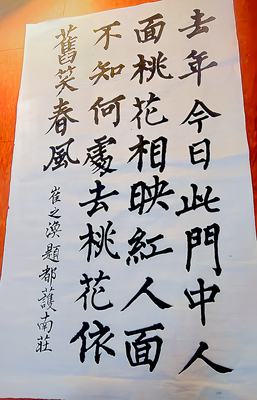 去年今日此門中人
面桃花相映紅人面
不知何處去桃花依
舊笑春風
崔之渙題都護南莊